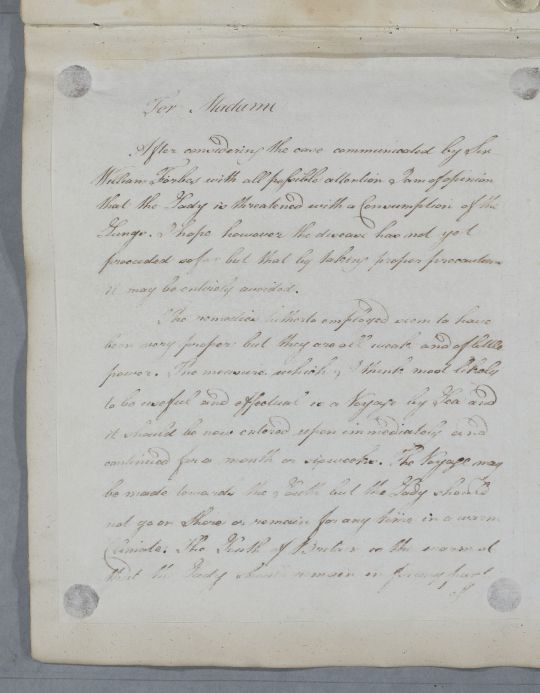 For Madame
After considering the case communicated by Sir
William Forbes with all possible attention I am of opinion
that the Lady is threatened with a Consumption of the
Lungs. I hope however the disease has not yet
proceeded so far but that by taking proper precautions
it may be entirely avoided.
The remedies hitherto employed seem to have
been very proper but they are all weak and of little
power. The measure which I think most likely
to be useful and effectual is a Voyage by Sea and
it should be now entered upon immediately and
continued for a month or six weeks. The Voyage may
be made towards the South but the Lady should
not go on shore or remain for any time in a warm
Climate. The South of Britain is the warmest
that the Lady should remain in for any part
of